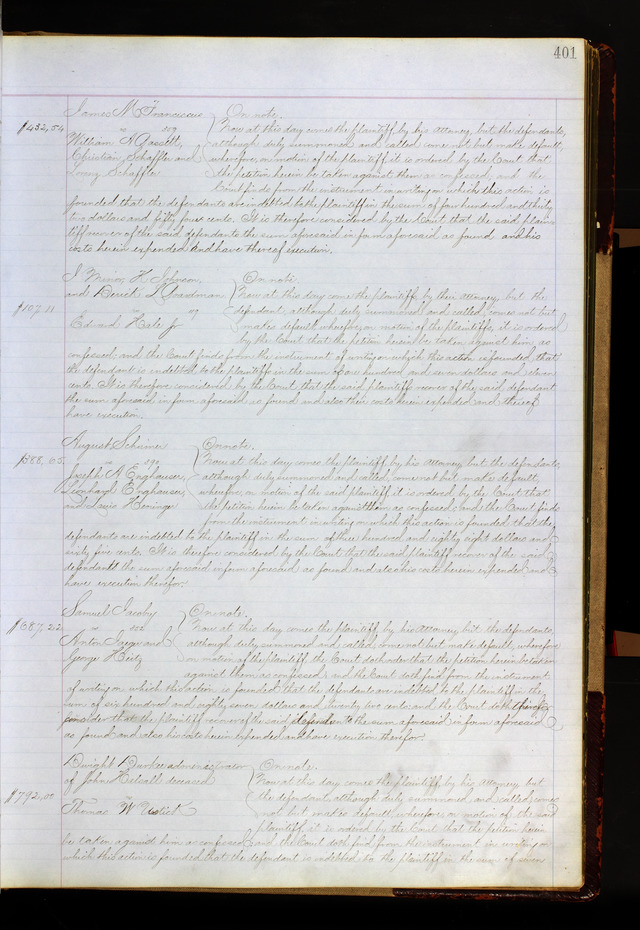 401
James M Franciscus } On note.
$432,54 vs 109 Now at this day comes the plaintiff, by his Attorney, but the defendants,
William A Gassitt, although duly summoned and called come not but make default,
Christian Schaffle and wherefore, on motion of the plaintiff it is ordered by the Court that
Lorenz Schaffle the petition herein be taken against them as confessed, and the
Court finds from the instrument in writing on which this action is
founded that the defendants are indebted to the plaintiff in the sum of four hundred and thirty
two dollars and fifty four cents. It is therefore considered by the Court that the said plain-
tiff recover of the said defendants the sum aforesaid in form aforesaid as found and his
costs herein expended and have thereof execution.
I Minor H Johnson, } On note.
and Derich A Boardman Now at this day come the plaintiffs by their Attorney but the
$107.11 vs 117 defendant although duly summoned and called, comes not but
Edward Hale Jr makes default wherefore on motion of the plaintiffs, it is ordered
by the Court that the petition herein be taken against him, as
confessed, and the Court finds from the instrument of writing on which this action is founded, that
the defendant is indebted to the plaintiffs in the sum of one hundred and seven dollars and eleven
cents. It is therefore considered by the Court, that the said plaintiffs recover of the said defendant
the sum aforesaid in form aforesaid as found and also their costs herein expended and thereof
have execution.
August Scheimer } On note.
$388,65. vs 591 Now at this day comes the plaintiff by his Attorney but the defendants,
Joseph A Enghauser, although duly summoned and called, come not but make default
Leonhard Enghauser, wherefore, on motion of the said plaintiff it is ordered by the Court that
and Louis Heninge the petition herein be taken against them as confessed; and the Court finds
from the instrument in writing on which this action is founded that the
defendants are indebted to the plaintiff in the sum of three hundred and eighty eight dollars and
sixty five cents. It is therefore considered by the Court that the said plaintiff recover of the said
defendants the sum aforesaid in form aforesaid as found and also his costs herein expended and
have execution therefor.
Samuel Jacoby } On note.
$687,22 vs 522 Now at this day comes the plaintiff by his Attorney but the defendants
Anton Jaeger and although duly summoned and called, come not but make default, wherefore
George Heitz on motion of the plaintiff, the Court doth order that the petition herein be taken
against them as confessed; and the Court doth find from the instrument
of writing on which this action is founded that the defendants are indebted to the plaintiff in the
sum of six hundred and eighty seven dollars and twenty two cents and the Court doth therefor
consider that the plaintiff recover of the said defendants the sum aforesaid in form aforesaid
as found and also his costs herein expended and have execution therefor.
Dwight Durkee administrator } On note.
of John Halsall deceased Now at this day comes the plaintiff, by his Attorney but
$792,00 vs the defendant, although duly summoned and called, comes
Thomas W not but makes default, wherefore, on motion of the said
plaintiff, it is ordered by the Court that the petition herein
be taken against him as confessed, and the Court doth find from the instrument in writing on
which this action is founded that the defendant is indebted to the plaintiff in the sum of seven